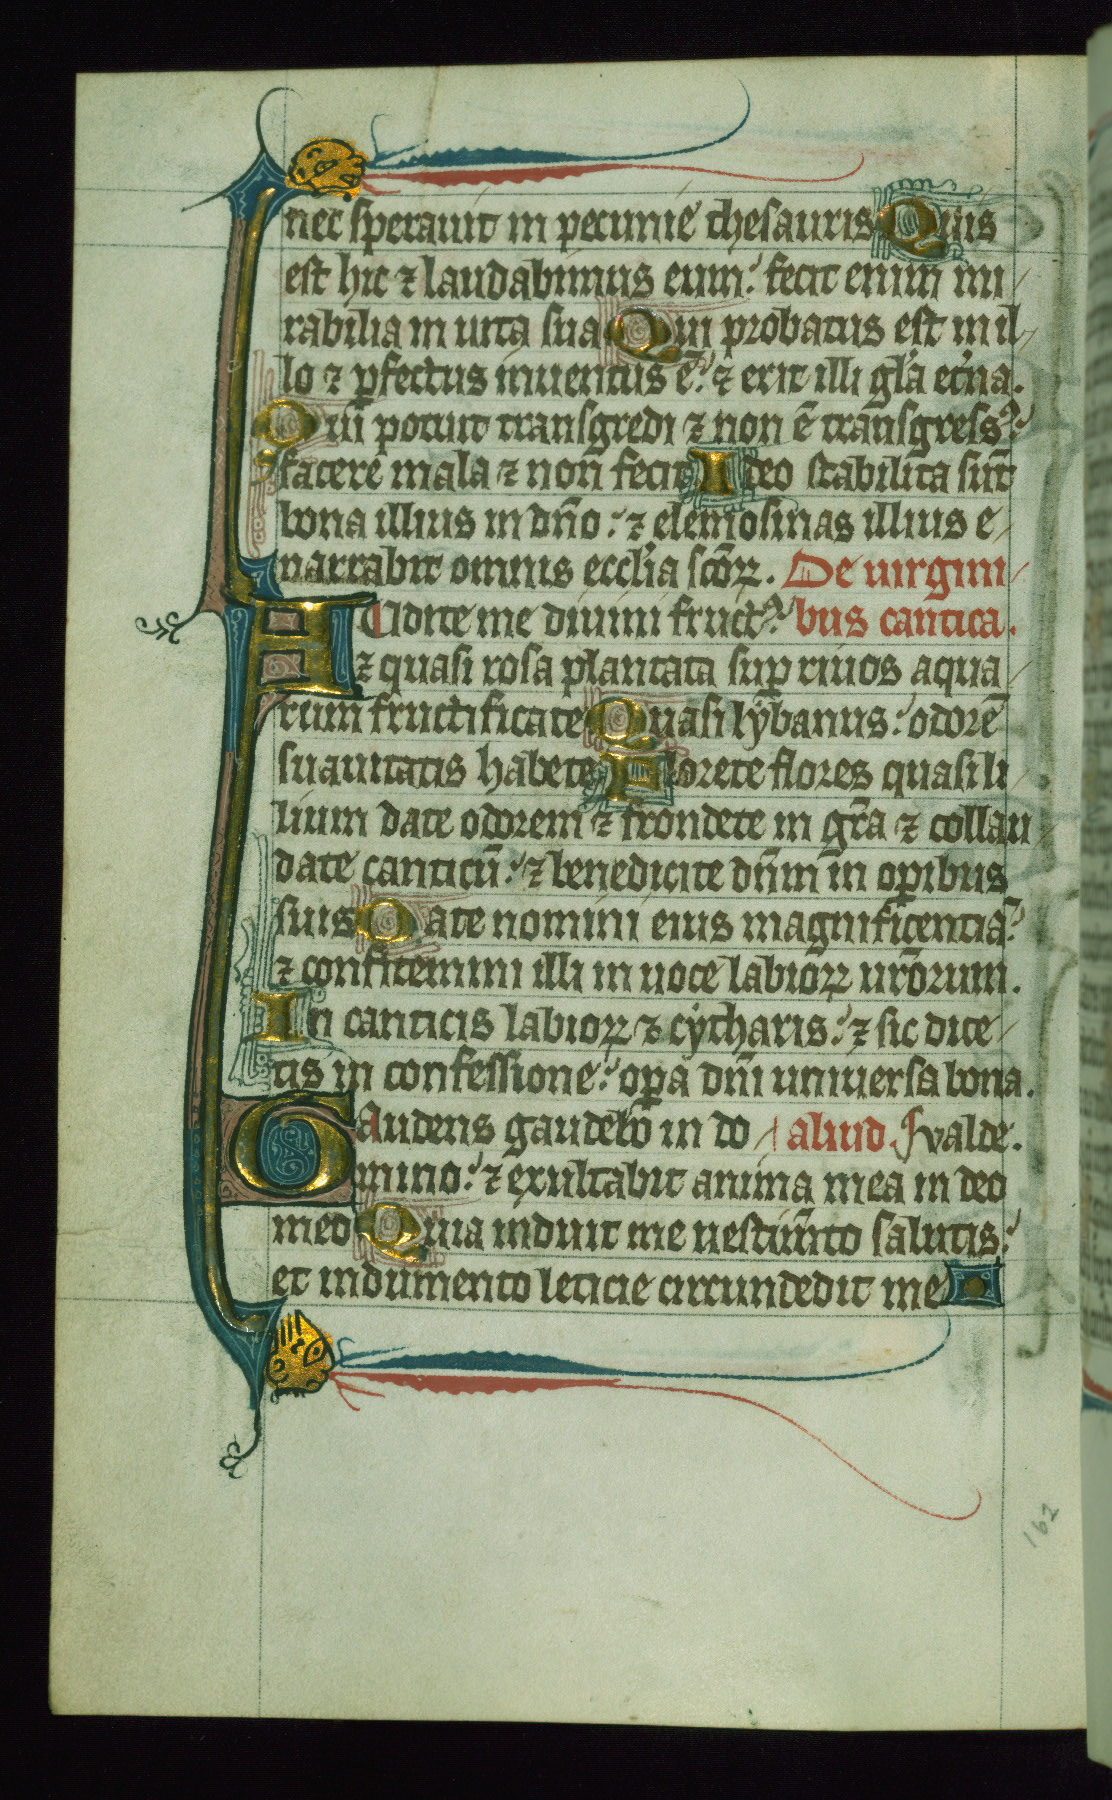 nec sperauit in pecunie thesauris Quis
est hic ⁊ laudabimus eum: fecit enim mi
rabilia in uita sua Qui probatus est in il
lo ⁊ ꝑfectus inuentus ē: ⁊ erit illi gl̃a et̃na.
Qui potuit transgredi ⁊ non ē transgress᷒:
facere mala ⁊ non fecit Ideo stabilita sūt
bona illius in dño: ⁊ elemosinas illius e
narrabit omnis eccl̃ia scōꝝ. De uirgini
Audite me diuini fruct᷒: bus cantica.
⁊ quasi rosa plantata suꝑ riuos aqua
rum fructificate Quasi lybanus: odorē
suauitatis habete Florete flores quasi li
lium date odorem ⁊ frondete in gr̃a ⁊ collau
date canticū: ⁊ benedicite dñm in oꝑibus
suis Date nomini eius magnificentiā:
⁊ confitemini illi in uoce labioꝝ ur̃orum.
In canticis labioꝝ ⁊ cytharis: ⁊ sic dice
tis in confessione: oꝑa dñi uniuersa bona.
Gaudens gaudebo in do aliud. ualde.
mino: ⁊ exultabit anima mea in deo
meo Quia induit me uestim̃to salutis:
et indumento leticie circundedit me
162